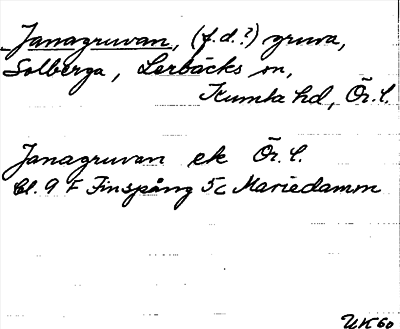 Janagruvan, (f.d.?) gruva,
Solberga, Lerbäcks sn,
Kumla hd, Ör. l.
Janagruvan ek Ör. l.
Bl. 9 F Finspång 5c Mariedamm
UK60